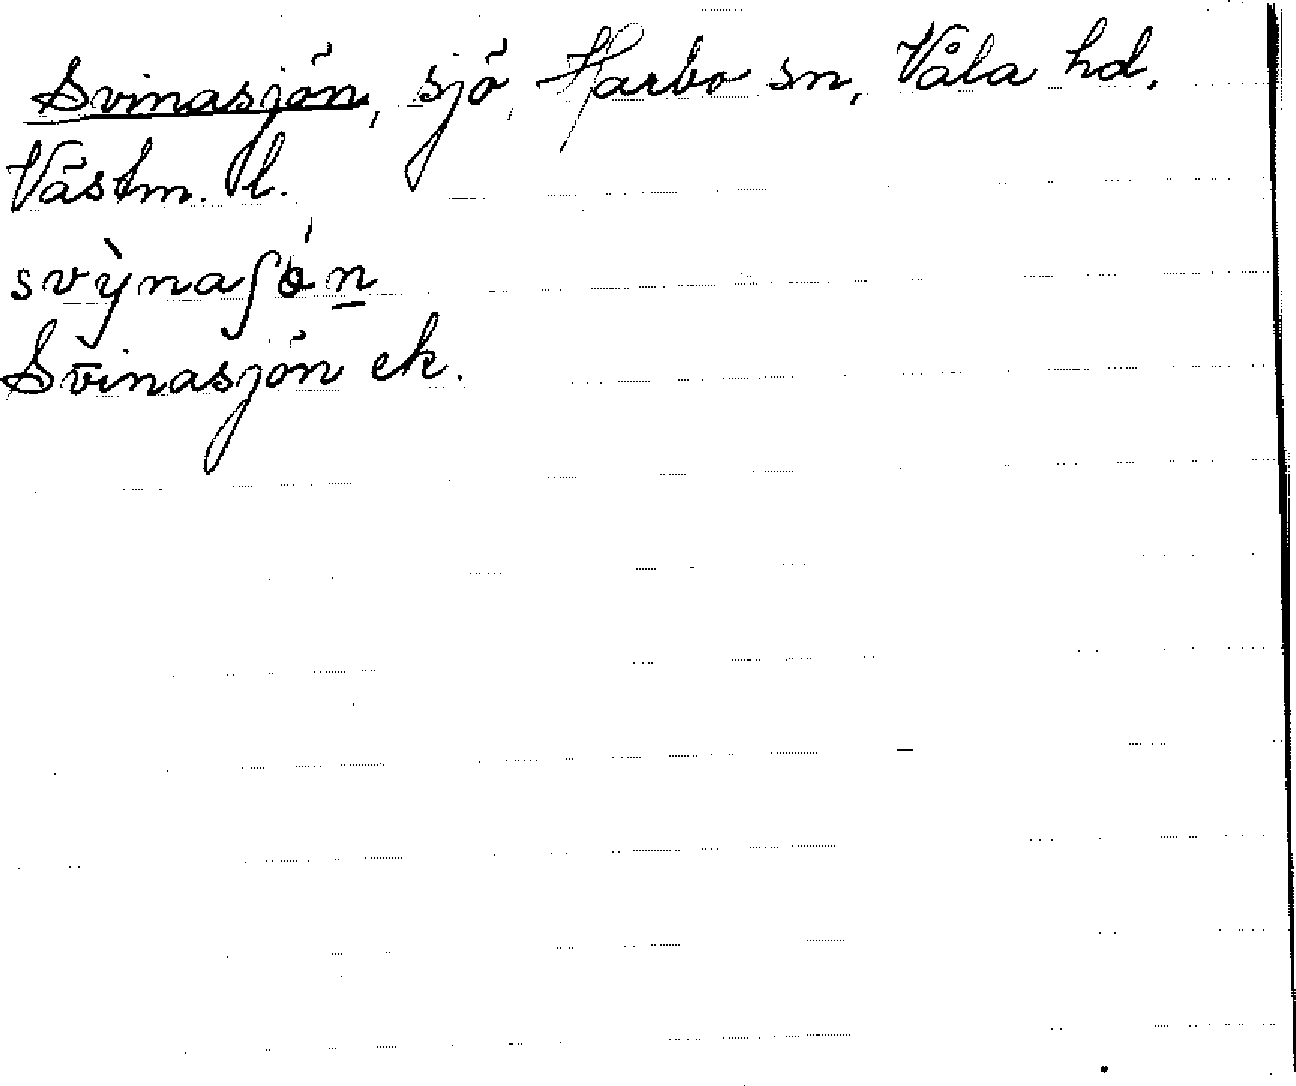 Svinasjön, sjö, Harbo sn, Våla hd,
Västm. l.
svy̆̀naʃön
Svinasjön ek.